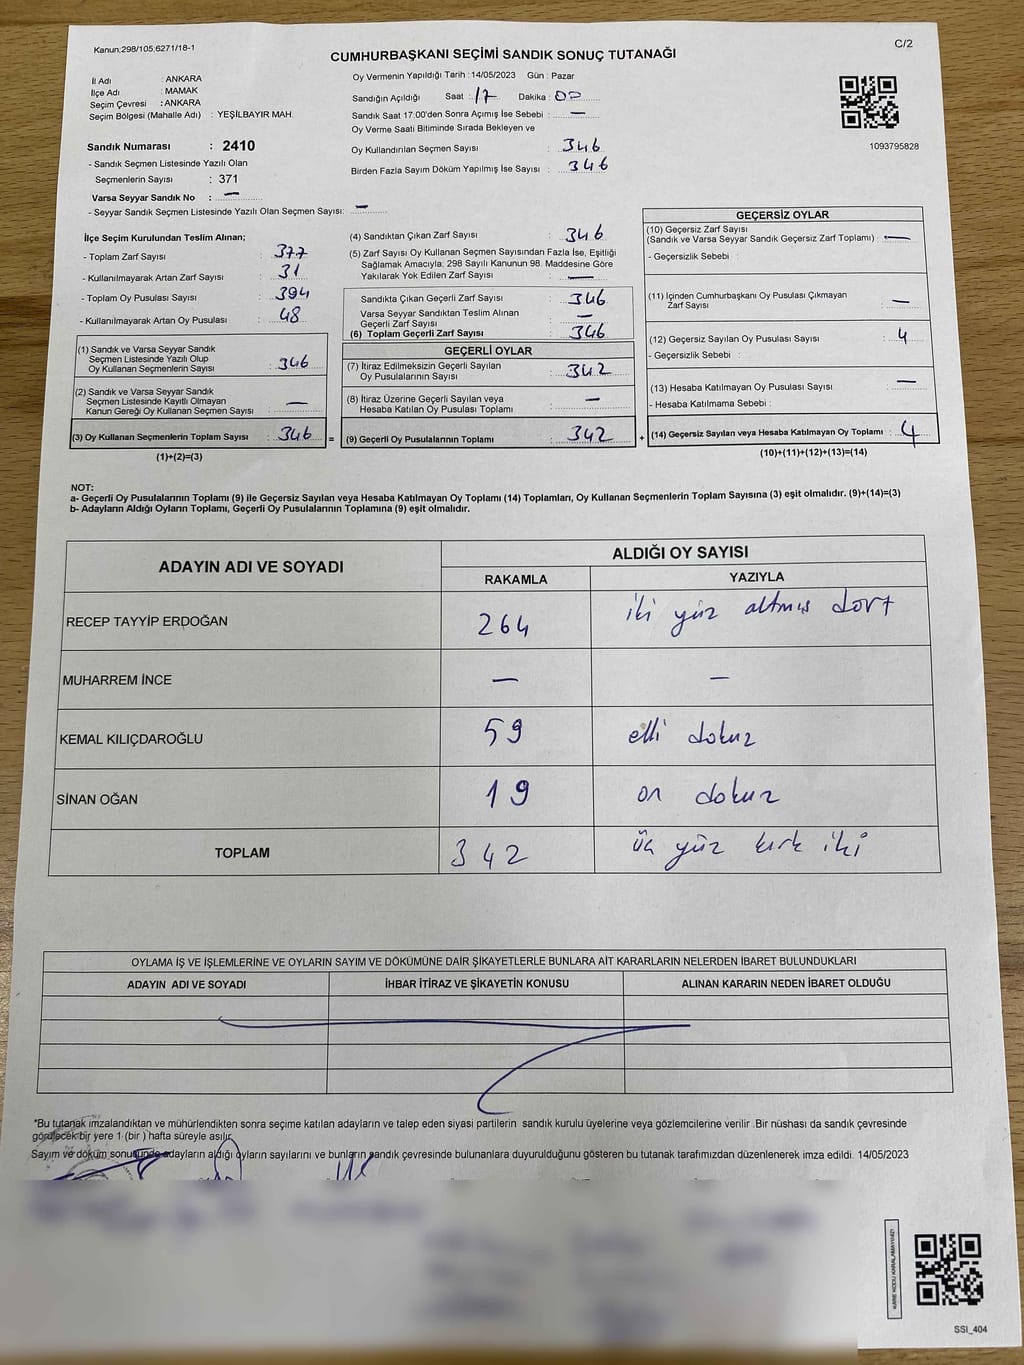 Kanun:298/105;6271/18-1
C/2
CUMHURBAŞKANI SEÇİMİ SANDIK SONUÇ TUTANAĞI
İl Adı : ANKARA
İlçe Adı : MAMAK
Seçim Çevresi : ANKARA
Seçim Bölgesi (Mahalle Adı) : YEŞİLBAYIR MAH.
Sandık Numarası : 2410
- Sandık Seçmen Listesinde Yazılı Olan
Seçmenlerin Sayısı : 371
Varsa Seyyar Sandık No : —
- Seyyar Sandık Seçmen Listesinde Yazılı Olan Seçmen Sayısı: —
Oy Vermenin Yapıldığı Tarih : 14/05/2023 Gün : Pazar
Sandığın Açıldığı Saat : 17 Dakika : 00
Sandık Saat 17:00'den Sonra Açımış İse Sebebi : —
Oy Verme Saati Bitiminde Sırada Bekleyen ve
Oy Kullandırılan Seçmen Sayısı : 346
Birden Fazla Sayım Döküm Yapılmış İse Sayısı : 346
1093795828
İlçe Seçim Kurulundan Teslim Alınan;
- Toplam Zarf Sayısı : 377
- Kullanılmayarak Artan Zarf Sayısı : 31
- Toplam Oy Pusulası Sayısı : 394
- Kullanılmayarak Artan Oy Pusulası : 48
(1) Sandık ve Varsa Seyyar Sandık
Seçmen Listesinde Yazılı Olup
Oy Kullanan Seçmenlerin Sayısı : 346
(2) Sandık ve Varsa Seyyar Sandık
Seçmen Listesinde Kayıtlı Olmayan
Kanun Gereği Oy Kullanan Seçmen Sayısı : —
(3) Oy Kullanan Seçmenlerin Toplam Sayısı : 346 =
(1)+(2)=(3)
(4) Sandıktan Çıkan Zarf Sayısı : 346
(5) Zarf Sayısı Oy Kullanan Seçmen Sayısından Fazla İse, Eşitliği
Sağlamak Amacıyla; 298 Sayılı Kanunun 98. Maddesine Göre
Yakılarak Yok Edilen Zarf Sayısı : —
Sandıkta Çıkan Geçerli Zarf Sayısı : 346
Varsa Seyyar Sandıktan Teslim Alınan
Geçerli Zarf Sayısı : —
(6) Toplam Geçerli Zarf Sayısı : 346
GEÇERLİ OYLAR
(7) İtiraz Edilmeksizin Geçerli Sayılan
Oy Pusulalarının Sayısı : 342
(8) İtiraz Üzerine Geçerli Sayılan veya
Hesaba Katılan Oy Pusulası Toplamı : —
(9) Geçerli Oy Pusulalarının Toplamı : 342 +
GEÇERSİZ OYLAR
(10) Geçersiz Zarf Sayısı
(Sandık ve Varsa Seyyar Sandık Geçersiz Zarf Toplamı) : —
- Geçersizlik Sebebi :
(11) İçinden Cumhurbaşkanı Oy Pusulası Çıkmayan
Zarf Sayısı : —
(12) Geçersiz Sayılan Oy Pusulası Sayısı : 4
- Geçersizlik Sebebi :
(13) Hesaba Katılmayan Oy Pusulası Sayısı : —
- Hesaba Katılmama Sebebi :
(14) Geçersiz Sayılan veya Hesaba Katılmayan Oy Toplamı : 4
(10)+(11)+(12)+(13)=(14)
NOT:
a- Geçerli Oy Pusulalarının Toplamı (9) ile Geçersiz Sayılan veya Hesaba Katılmayan Oy Toplamı (14) Toplamları, Oy Kullanan Seçmenlerin Toplam Sayısına (3) eşit olmalıdır. (9)+(14)=(3)
b- Adayların Aldığı Oyların Toplamı, Geçerli Oy Pusulalarının Toplamına (9) eşit olmalıdır.
ADAYIN ADI VE SOYADI ALDIĞI OY SAYISI
RAKAMLA YAZIYLA
RECEP TAYYİP ERDOĞAN 264 iki yüz altmış dört
MUHARREM İNCE — —
KEMAL KILIÇDAROĞLU 59 elli dokuz
SİNAN OĞAN 19 on dokuz
TOPLAM 342 üç yüz kırk iki
OYLAMA İŞ VE İŞLEMLERİNE VE OYLARIN SAYIM VE DÖKÜMÜNE DAİR ŞİKAYETLERLE BUNLARA AİT KARARLARIN NELERDEN İBARET BULUNDUKLARI
ADAYIN ADI VE SOYADI İHBAR İTİRAZ VE ŞİKAYETİN KONUSU ALINAN KARARIN NEDEN İBARET OLDUĞU
*Bu tutanak imzalandıktan ve mühürlendikten sonra seçime katılan adayların ve talep eden siyasi partilerin sandık kurulu üyelerine veya gözlemcilerine verilir. Bir nüshası da sandık çevresinde
görülecek bir yere 1 (bir ) hafta süreyle asılır.
Sayım ve döküm sonucunda adayların aldığı oyların sayılarını ve bunların sandık çevresinde bulunanlara duyurulduğunu gösteren bu tutanak tarafımızdan düzenlenerek imza edildi. 14/05/2023
KARE KODU KARALAMAYINIZ!
SSI_404